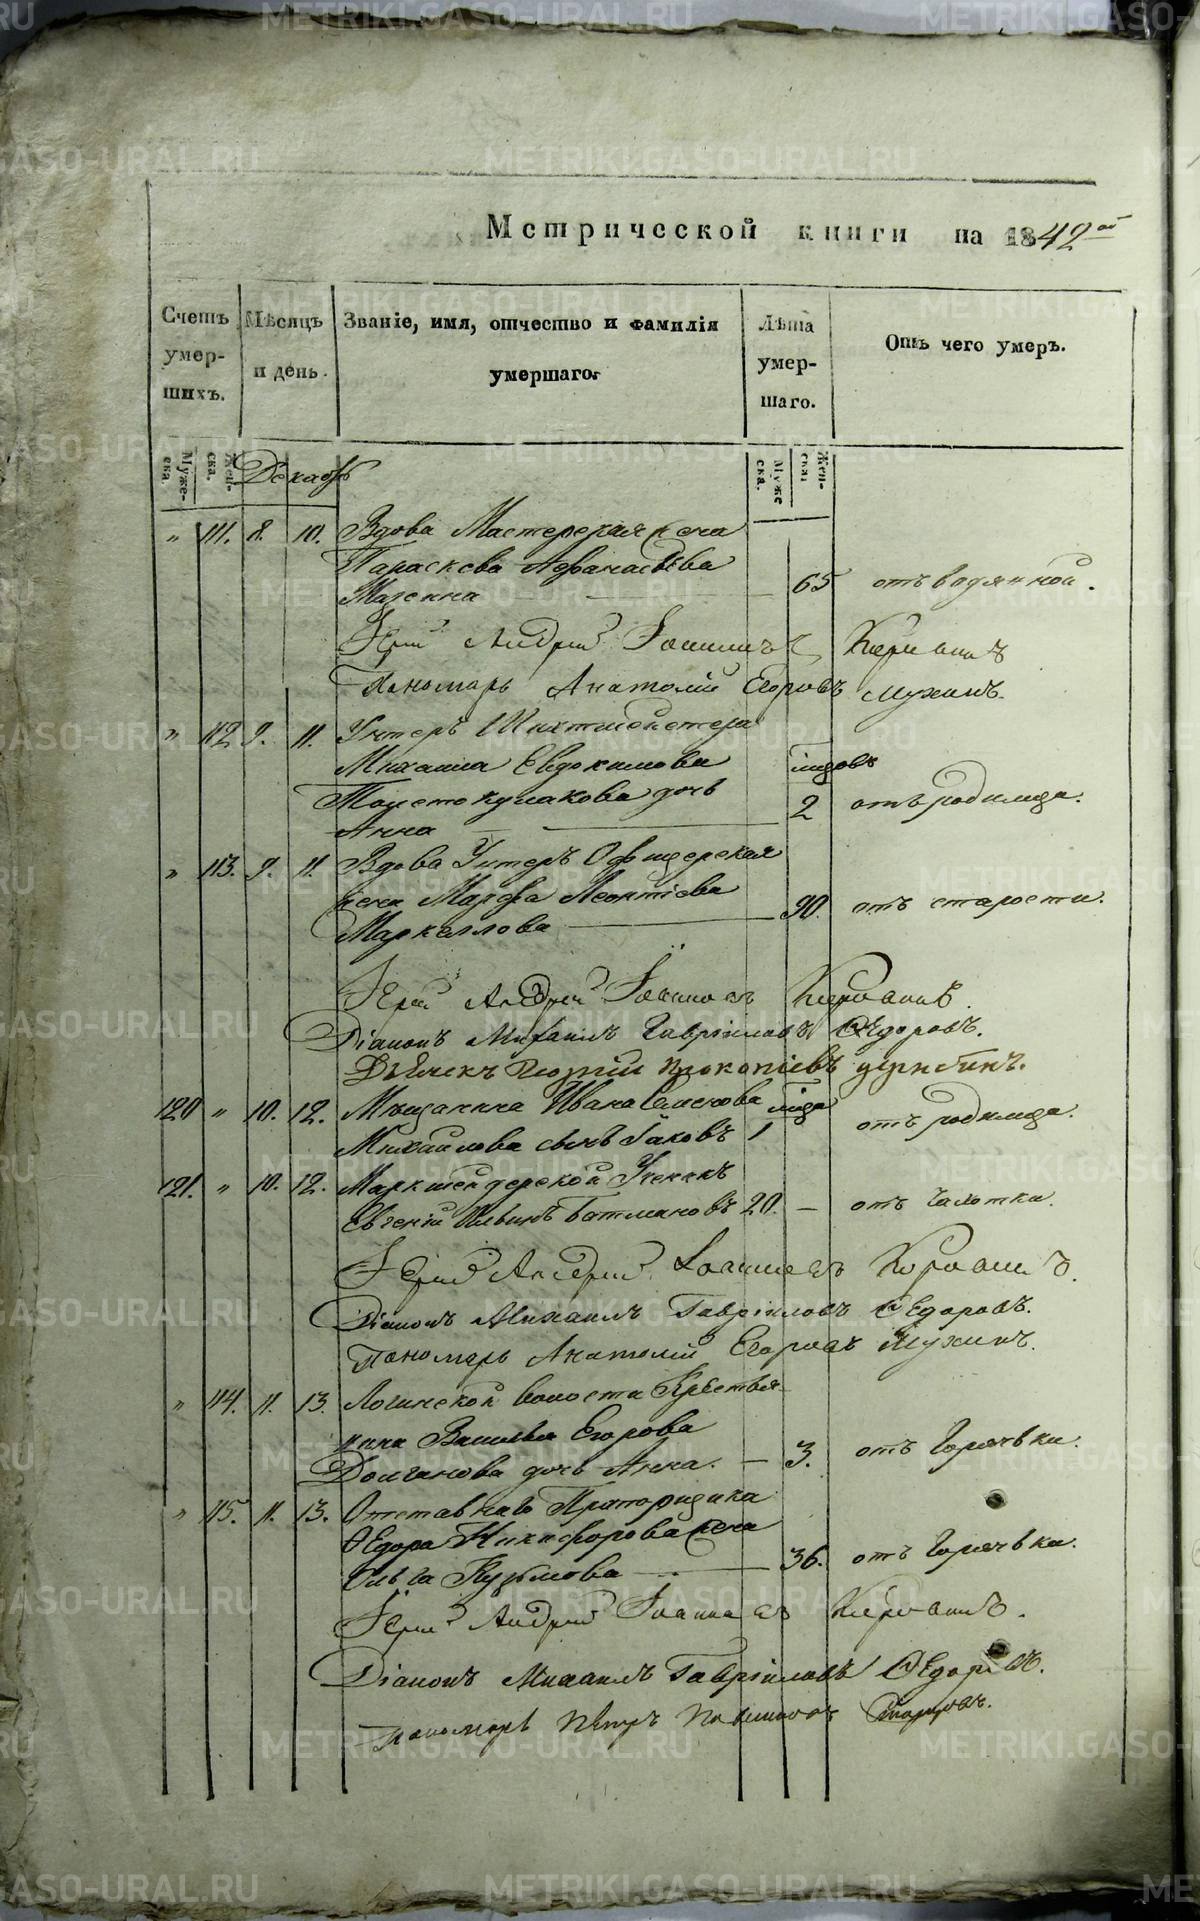 Метрической книги на 1842ой
Счетъ умер- шихъ.
Мѣсяцъ и день.
Званіе, имя, отчество и фамилія умершаго.
Лѣта умер- шаго.
Отъ чего умеръ.
Муже- ска. Жен- ска. Декабрь Муже ска. Жен- ска.
" 111. 8. 10. Вдова Мастерская жена
Параскева Афанасьева
65 отъ водяной.
Іерей Андрей Іоанновъ
Пономарь Анатолій Егоровъ Мухинъ.
" 112. 9. 11. Унтеръ Шихтмейстера
Михаила Евдокимова мѣсяцовъ
Толстокулакова дочь 2 отъ родимца.
Анна
" 113. 9. 11. Вдова Унтеръ Офицерская
жена Марфа Леонтіева 90. отъ старости.
Маркеллова
Іерей Андрей Іоанновъ
Діаконъ Михаилъ Гавріиловъ Ѳедоровъ.
Дьячекъ Георгій Прокопіевъ
120 " 10. 12. Мѣщанина Ивана Семенова
Михайлова сынъ Іаковъ 1 отъ родимца.
121. " 10. 12. Маркшейдерской Ученикъ
Евгеній Ильинъ Батмановъ 20. — отъ чахотки.
Іерей Андрей Іоанновъ
Діаконъ Михаилъ Гавріиловъ Ѳедоровъ.
Пономарь Анатолій Егоровъ Мухинъ.
" 114. 11. 13. Логинской волости Крестья-
нина Василья Егорова
Долганова дочь Анна. — 3. отъ горячьки.
" 115. 11. 13. Отставнаго Прапорщика
Ѳедора Никифорова жена
Ольга Кузьмова — 36. отъ горячьки.
Іерей Андрей Іоанновъ
Діаконъ Михаилъ Гавріиловъ Ѳедоровъ.
Пономарь Петръ
METRIKI.GASO-URAL.RU